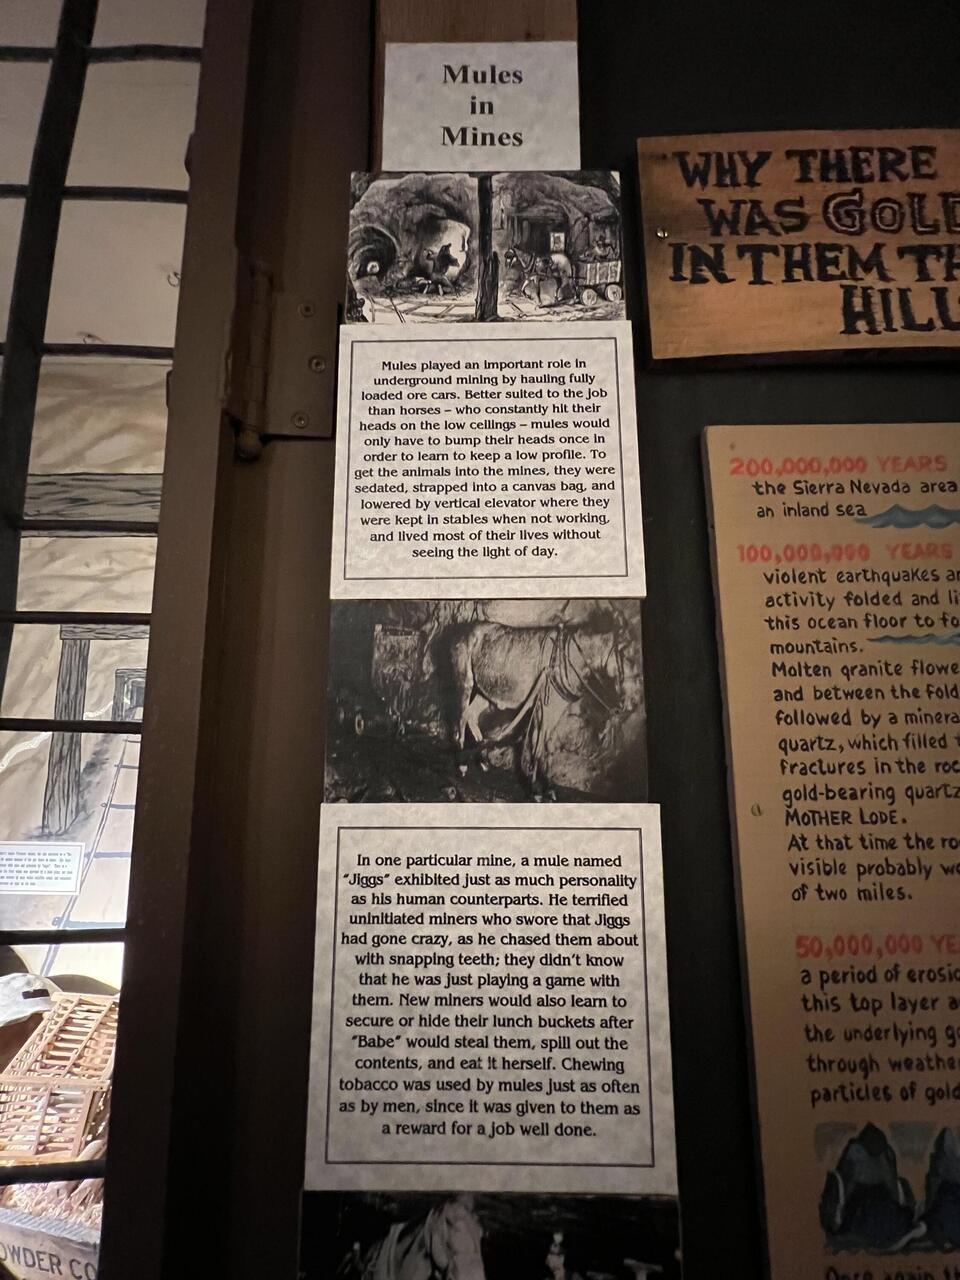 Mules
in
Mines
Mules played an important role in
underground mining by hauling fully
loaded ore cars. Better suited to the job
than horses – who constantly hit their
heads on the low ceilings – mules would
only have to bump their heads once in
order to learn to keep a low profile. To
get the animals into the mines, they were
sedated, strapped into a canvas bag, and
lowered by vertical elevator where they
were kept in stables when not working,
and lived most of their lives without
seeing the light of day.
In one particular mine, a mule named
"Jiggs" exhibited just as much personality
as his human counterparts. He terrified
uninitiated miners who swore that Jiggs
had gone crazy, as he chased them about
with snapping teeth; they didn't know
that he was just playing a game with
them. New miners would also learn to
secure or hide their lunch buckets after
"Babe" would steal them, spill out the
contents, and eat it herself. Chewing
tobacco was used by mules just as often
as by men, since it was given to them as
a reward for a job well done.
WHY THERE
WAS GOLD
IN THEM TH
HILL
200,000,000 YEARS
the Sierra Nevada area
an inland sea
100,000,000 YEARS
violent earthquakes an
activity folded and li
this ocean floor to fo
mountains.
Molten granite flowe
and between the fold
followed by a minera
quartz, which filled t
fractures in the roc
gold-bearing quartz
MOTHER LODE.
At that time the ro
visible probably we
of two miles.
50,000,000 YE
a period of erosi
this top layer a
the underlying go
through weathe
particles of gold
OWDER CO